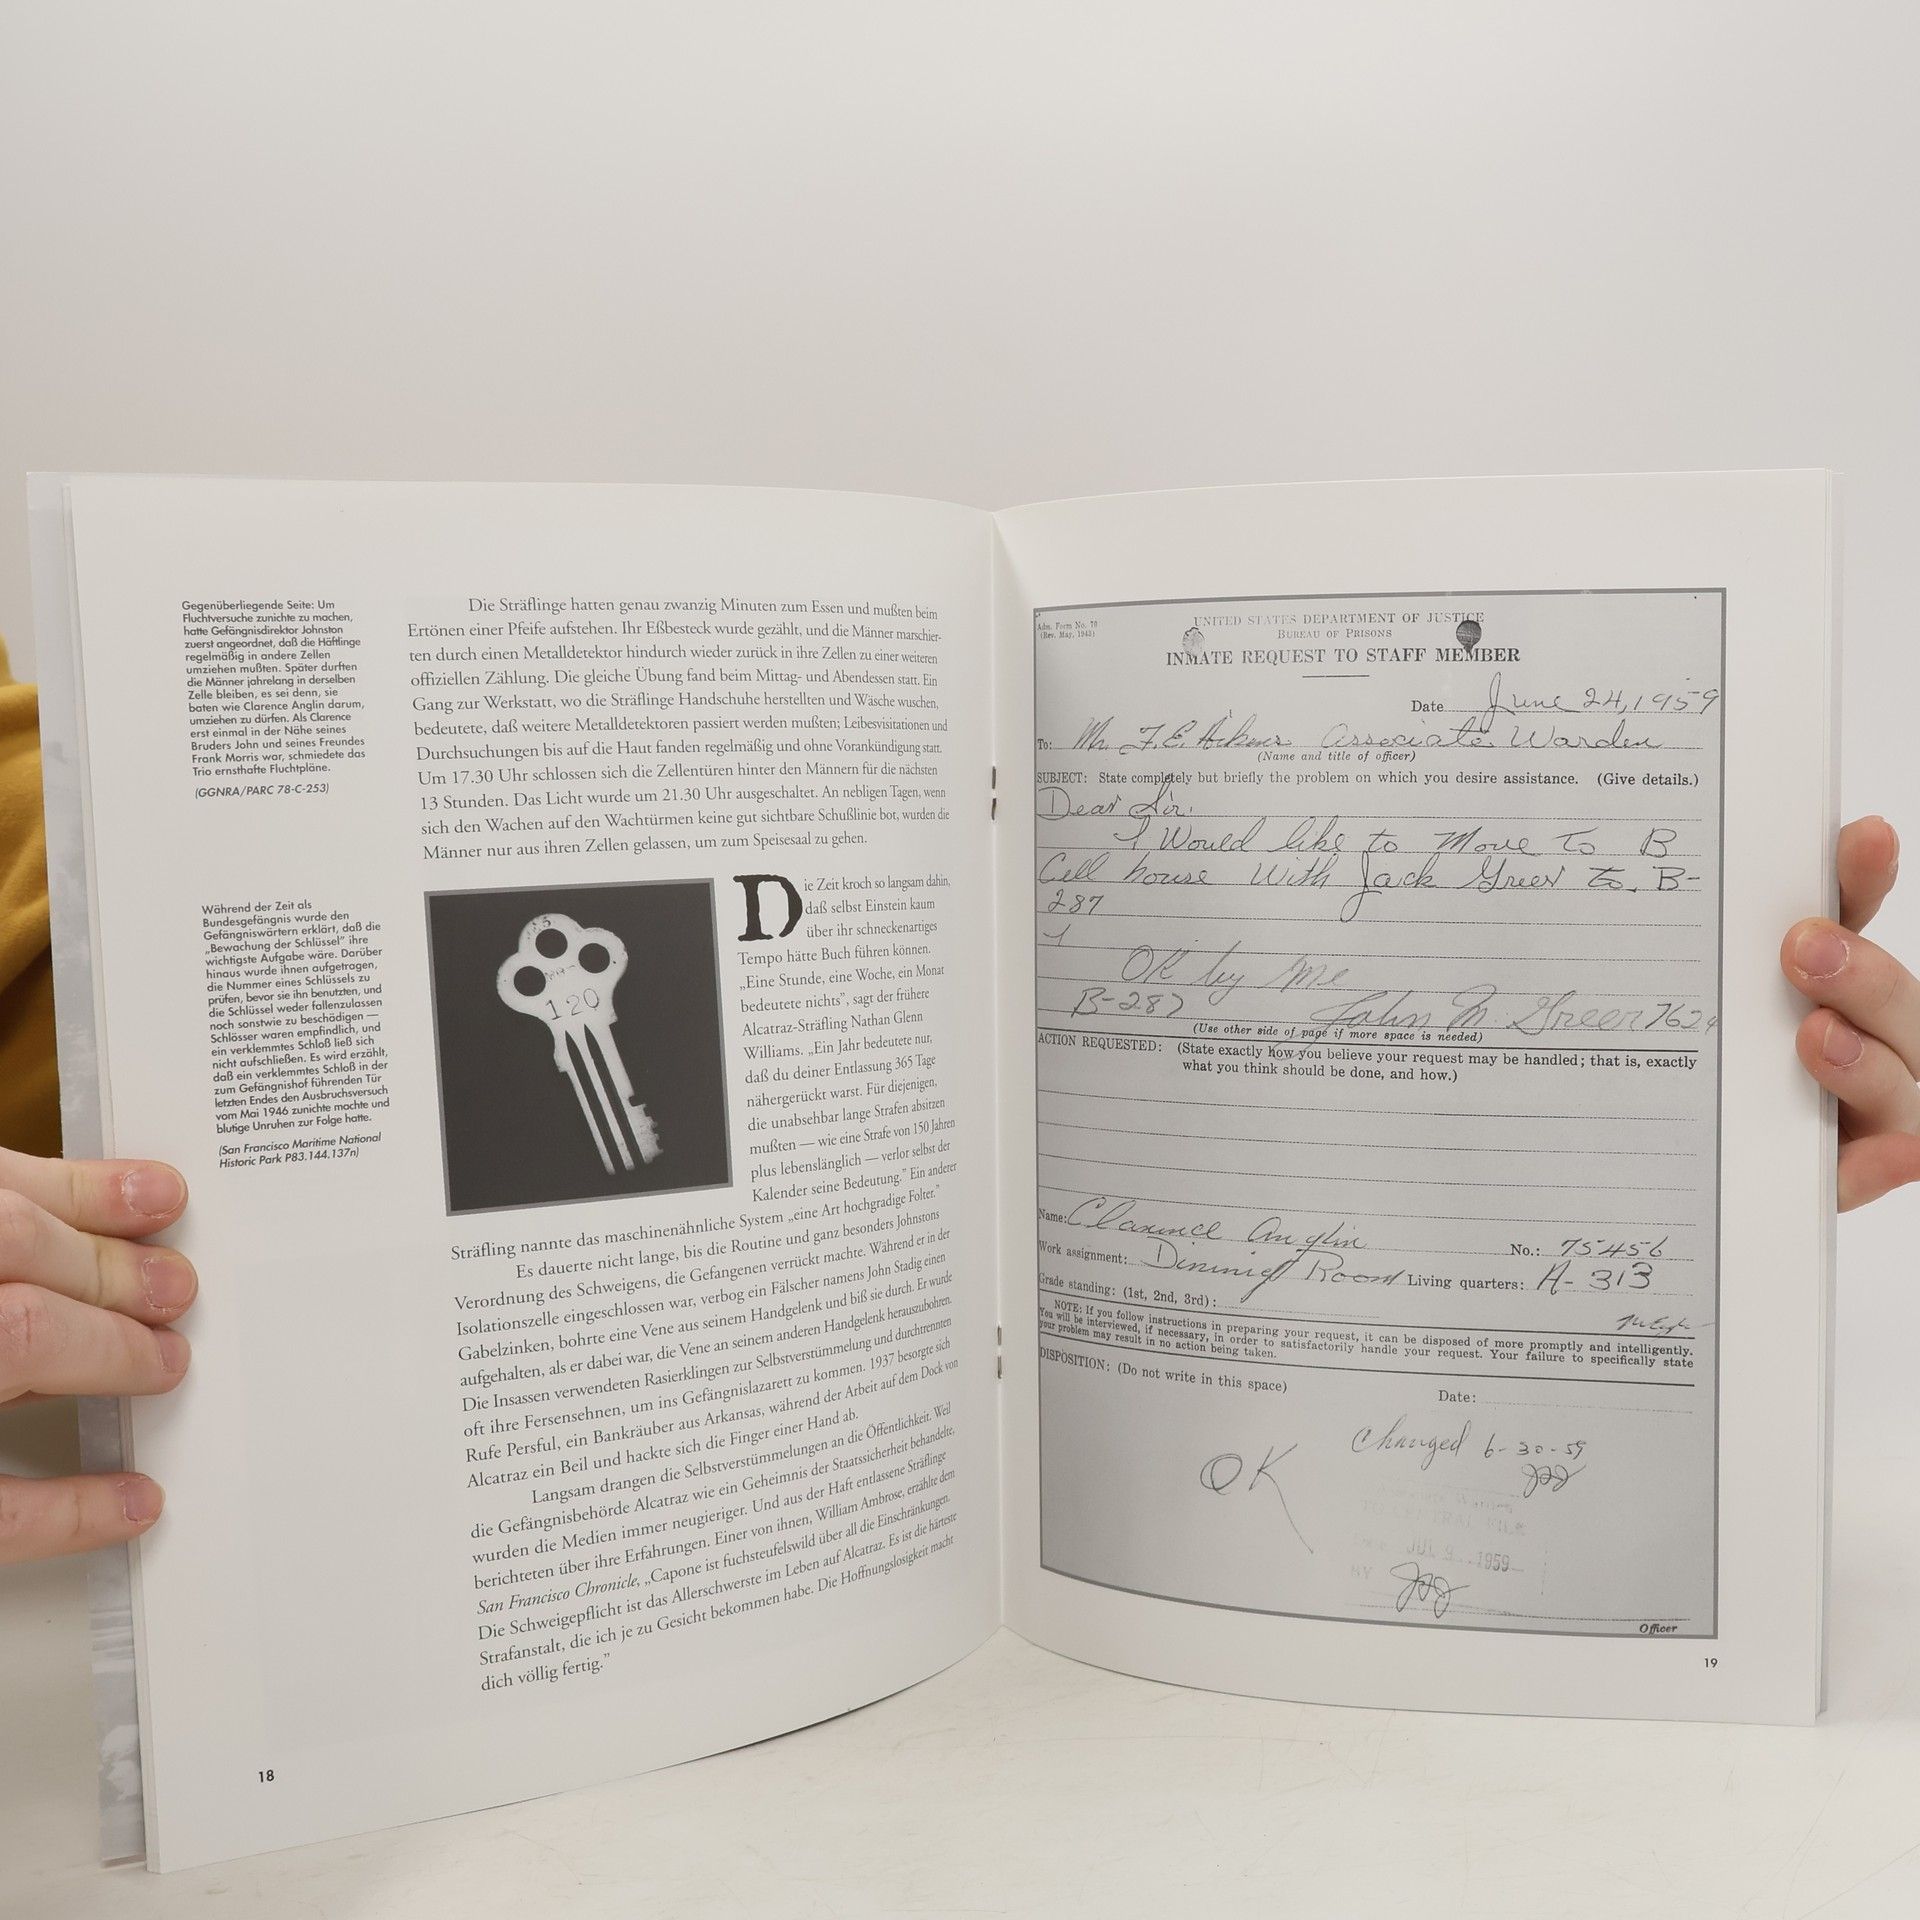 Gegenüberliegende Seite: Um
Fluchtversuche zunichte zu machen,
hatte Gefängnisdirektor Johnston
zuerst angeordnet, daß die Häftlinge
regelmäßig in andere Zellen
umziehen mußten. Später durften
die Männer jahrelang in derselben
Zelle bleiben, es sei denn, sie
baten wie Clarence Anglin darum,
umziehen zu dürfen. Als Clarence
erst einmal in der Nähe seines
Bruders John und seines Freundes
Frank Morris war, schmiedete das
Trio ernsthafte Fluchtpläne.
(GGNRA/PARC 78-C-253)
Während der Zeit als
Bundesgefängnis wurde den
Gefängniswärtern erklärt, daß die
„Bewachung der Schlüssel" ihre
wichtigste Aufgabe wäre. Darüber
hinaus wurde ihnen aufgetragen,
die Nummer eines Schlüssels zu
prüfen, bevor sie ihn benutzten, und
die Schlüssel weder fallenzulassen
noch sonstwie zu beschädigen —
Schlösser waren empfindlich, und
ein verklemmtes Schloß ließ sich
nicht aufschließen. Es wird erzählt,
daß ein verklemmtes Schloß in der
zum Gefängnishof führenden Tür
letzten Endes den Ausbruchsversuch
vom Mai 1946 zunichte machte und
blutige Unruhen zur Folge hatte.
(San Francisco Maritime National
Historic Park P83.144.137n)
Die Sträflinge hatten genau zwanzig Minuten zum Essen und mußten beim
Ertönen einer Pfeife aufstehen. Ihr Eßbesteck wurde gezählt, und die Männer marschier-
ten durch einen Metalldetektor hindurch wieder zurück in ihre Zellen zu einer weiteren
offiziellen Zählung. Die gleiche Übung fand beim Mittag- und Abendessen statt. Ein
Gang zur Werkstatt, wo die Sträflinge Handschuhe herstellten und Wäsche wuschen,
bedeutete, daß weitere Metalldetektoren passiert werden mußten; Leibesvisitationen und
Durchsuchungen bis auf die Haut fanden regelmäßig und ohne Vorankündigung statt.
Um 17.30 Uhr schlossen sich die Zellentüren hinter den Männern für die nächsten
13 Stunden. Das Licht wurde um 21.30 Uhr ausgeschaltet. An nebligen Tagen, wenn
sich den Wachen auf den Wachtürmen keine gut sichtbare Schußlinie bot, wurden die
Männer nur aus ihren Zellen gelassen, um zum Speisesaal zu gehen.
120
Die Zeit kroch so langsam dahin,
daß selbst Einstein kaum
über ihr schneckenartiges
Tempo hätte Buch führen können.
„Eine Stunde, eine Woche, ein Monat
bedeutete nichts", sagt der frühere
Alcatraz-Sträfling Nathan Glenn
Williams. „Ein Jahr bedeutete nur,
daß du deiner Entlassung 365 Tage
nähergerückt warst. Für diejenigen,
die unabsehbar lange Strafen absitzen
mußten — wie eine Strafe von 150 Jahren
plus lebenslänglich — verlor selbst der
Kalender seine Bedeutung." Ein anderer
Sträfling nannte das maschinenähnliche System „eine Art hochgradige Folter."
Es dauerte nicht lange, bis die Routine und ganz besonders Johnstons
Verordnung des Schweigens, die Gefangenen verrückt machte. Während er in der
Isolationszelle eingeschlossen war, verbog ein Fälscher namens John Stadig einen
Gabelzinken, bohrte eine Vene aus seinem Handgelenk und biß sie durch. Er wurde
aufgehalten, als er dabei war, die Vene an seinem anderen Handgelenk herauszubohren.
Die Insassen verwendeten Rasierklingen zur Selbstverstümmelung und durchtrennten
oft ihre Fersensehnen, um ins Gefängnislazarett zu kommen. 1937 besorgte sich
Rufe Persful, ein Bankräuber aus Arkansas, während der Arbeit auf dem Dock von
Alcatraz ein Beil und hackte sich die Finger einer Hand ab.
Langsam drangen die Selbstverstümmelungen an die Öffentlichkeit. Weil
die Gefängnisbehörde Alcatraz wie ein Geheimnis der Staatssicherheit behandelte,
wurden die Medien immer neugieriger. Und aus der Haft entlassene Sträflinge
berichteten über ihre Erfahrungen. Einer von ihnen, William Ambrose, erzählte dem
San Francisco Chronicle, „Capone ist fuchsteufelswild über all die Einschränkungen.
Die Schweigepflicht ist das Allerschwerste im Leben auf Alcatraz. Es ist die härteste
Strafanstalt, die ich je zu Gesicht bekommen habe. Die Hoffnungslosigkeit macht
dich völlig fertig."
18
Adm. Form No. 70
(Rev. May, 1943)
UNITED STATES DEPARTMENT OF JUSTICE
BUREAU OF PRISONS
INMATE REQUEST TO STAFF MEMBER
Date June 24, 1959
To: Mr. F.E. Associate Warden
(Name and title of officer)
SUBJECT: State completely but briefly the problem on which you desire assistance. (Give details.)
Dear Sir.
I Would like to Move To B
Cell house With Jack Greer to. B-
287
OK by Me
B-287 John M. Greer 7624
(Use other side of page if more space is needed)
ACTION REQUESTED: (State exactly how you believe your request may be handled; that is, exactly
what you think should be done, and how.)
Name: Clarence Anglin No.: 75456
Work assignment: Dining Room Living quarters: A-313
Grade standing: (1st, 2nd, 3rd):
NOTE: If you follow instructions in preparing your request, it can be disposed of more promptly and intelligently.
You will be interviewed, if necessary, in order to satisfactorily handle your request. Your failure to specifically state
your problem may result in no action being taken.
DISPOSITION: (Do not write in this space)
Date:
Changed 6-30-59
OK
JUL 9 1959
Officer
19